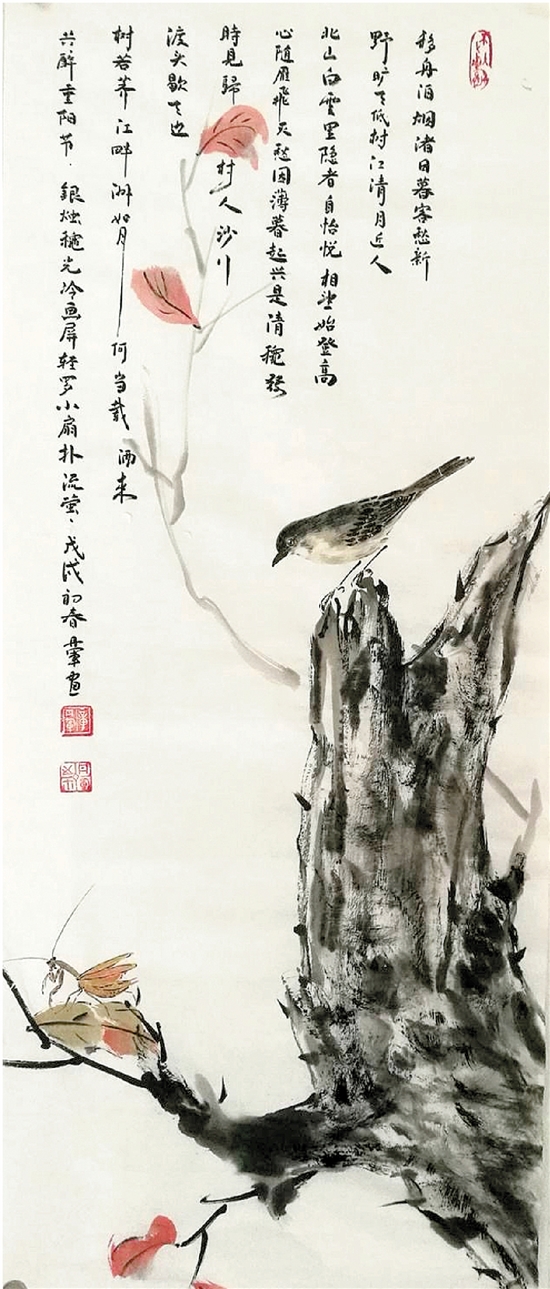 移舟泊烟渚日暮客愁新
野旷天低树江清月近人
北山白雲里隐者自怡悦相望始登高
心随雁飞灭愁因薄暮起兴是清穐發
時見歸村人沙行
渡头歇天边
树若荠江畔洲如月何当载酒来
共醉重阳节、銀烛穐光冷画屏轻罗小扇扑流萤、戊戌初春画